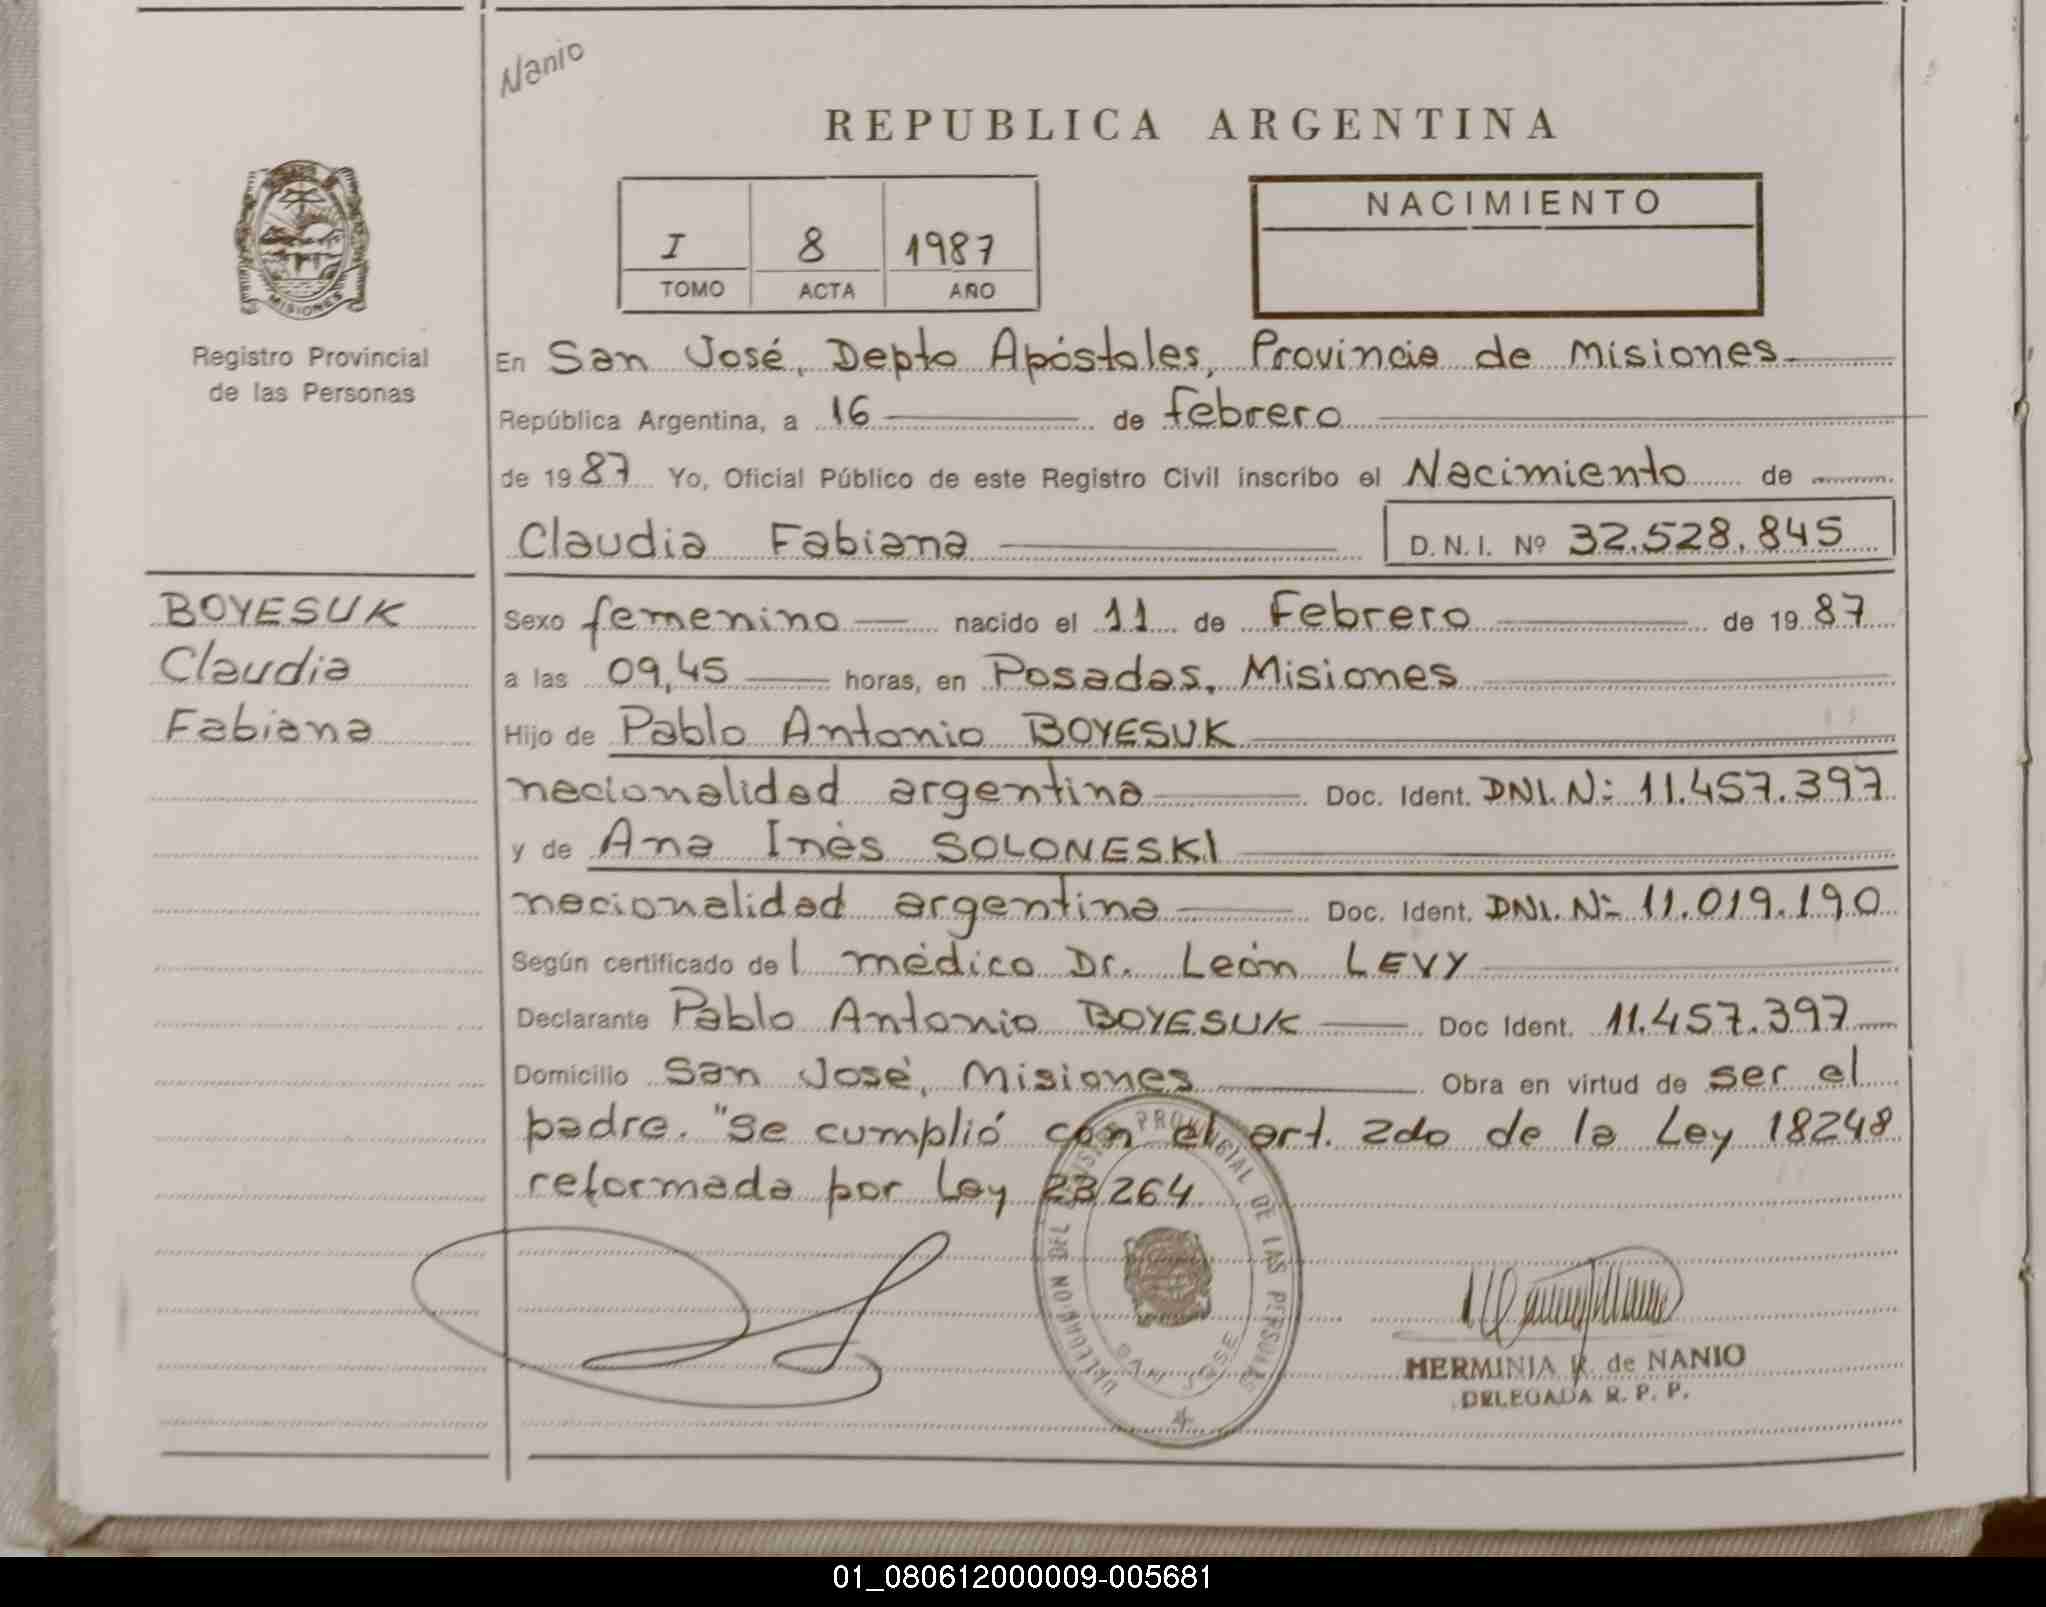 Nanio
REPUBLICA ARGENTINA
I 8 1987
TOMO ACTA AÑO
NACIMIENTO
MISIONES
Registro Provincial
de las Personas
En San José, Depto Apóstoles, Provincia de Misiones
República Argentina, a 16 de febrero
de 1987 Yo, Oficial Público de este Registro Civil inscribo el Nacimiento de
Claudia Fabiana D.N.I. Nº 32.528.845
BOYESUK
Claudia
Fabiana
Sexo femenino nacido el 11 de Febrero de 1987
a las 09,45 horas, en Posadas, Misiones
Hijo de Pablo Antonio BOYESUK
nacionalidad argentina Doc. Ident. DNI. Nº 11.457.397
y de Ana Inés SOLONESKI
nacionalidad argentina Doc. Ident. DNI. Nº 11.019.190
Según certificado del médico Dr. León LEVY
Declarante Pablo Antonio BOYESUK Doc Ident. 11.457.397
Domicilio San José, Misiones Obra en virtud de ser el
padre. "Se cumplió con el art. 2do de la Ley 18248
reformada por Ley 23264
PROVINCIAL DE LAS PERSONAS
SAN JOSE
HERMINIA R. de NANIO
DELEGADA R. P. P.
01_080612000009-005681